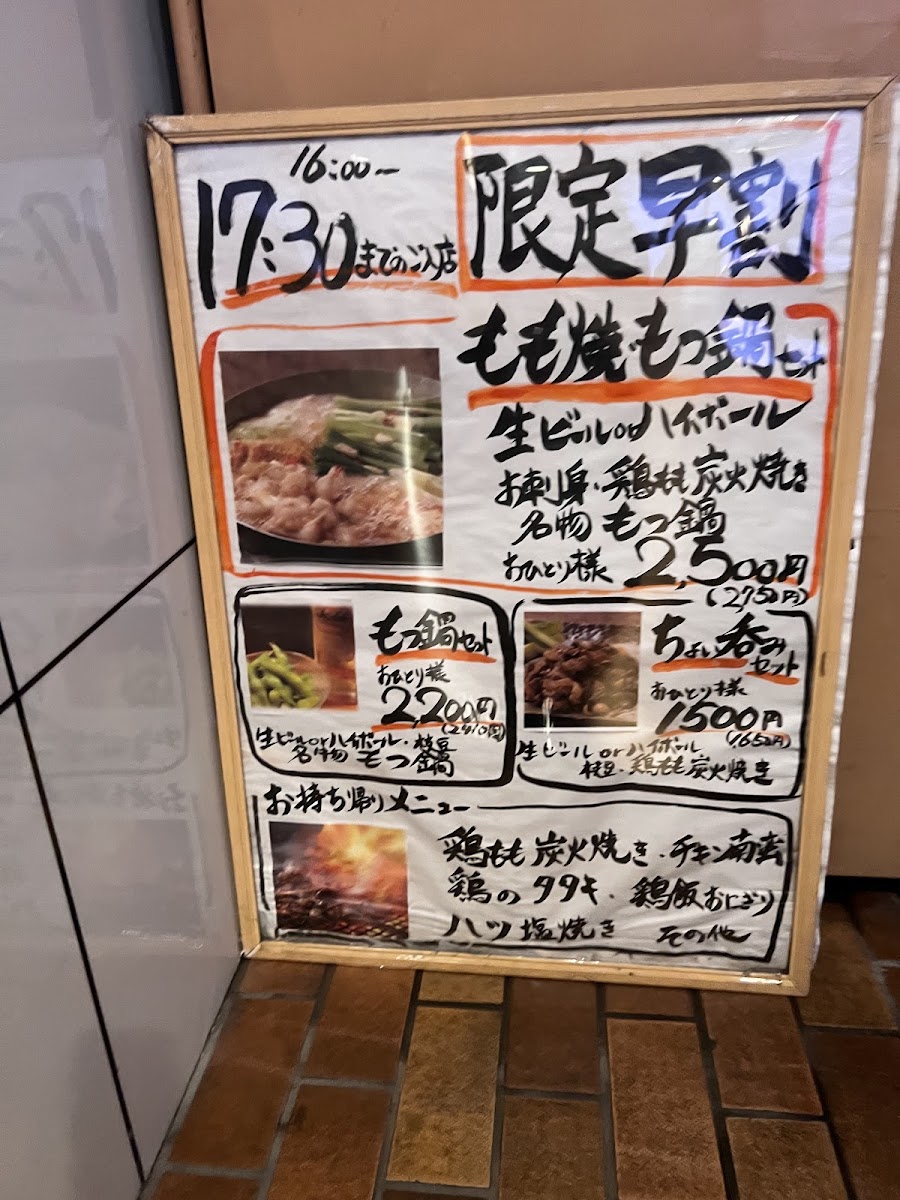 16:00〜
17:30までのご入店
限定早割
もも焼・もつ鍋セット
生ビールorハイボール
お刺身・鶏もも炭火焼き
名物 もつ鍋
おひとり様 2,500円
(2750円)
もつ鍋セット
おひとり様
2,200円
(2420円)
生ビールorハイボール・枝豆
名物 もつ鍋
ちょい呑みセット
おひとり様
1500円
(1650円)
生ビール or ハイボール
枝豆・鶏もも炭火焼き
お持ち帰りメニュー
鶏もも炭火焼き・チキン南蛮
鶏のタタキ・鶏飯おにぎり
ハツ塩焼き その他